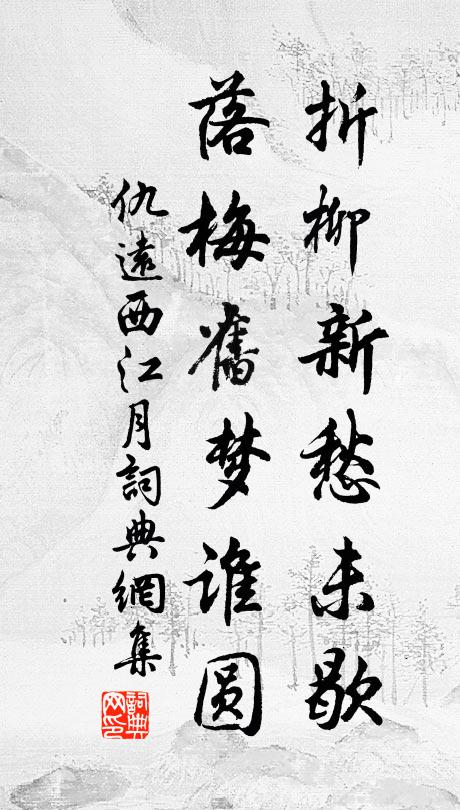 折柳新愁未歇
落梅舊梦谁圆
仇遠西江月詞典網集
詞典网印